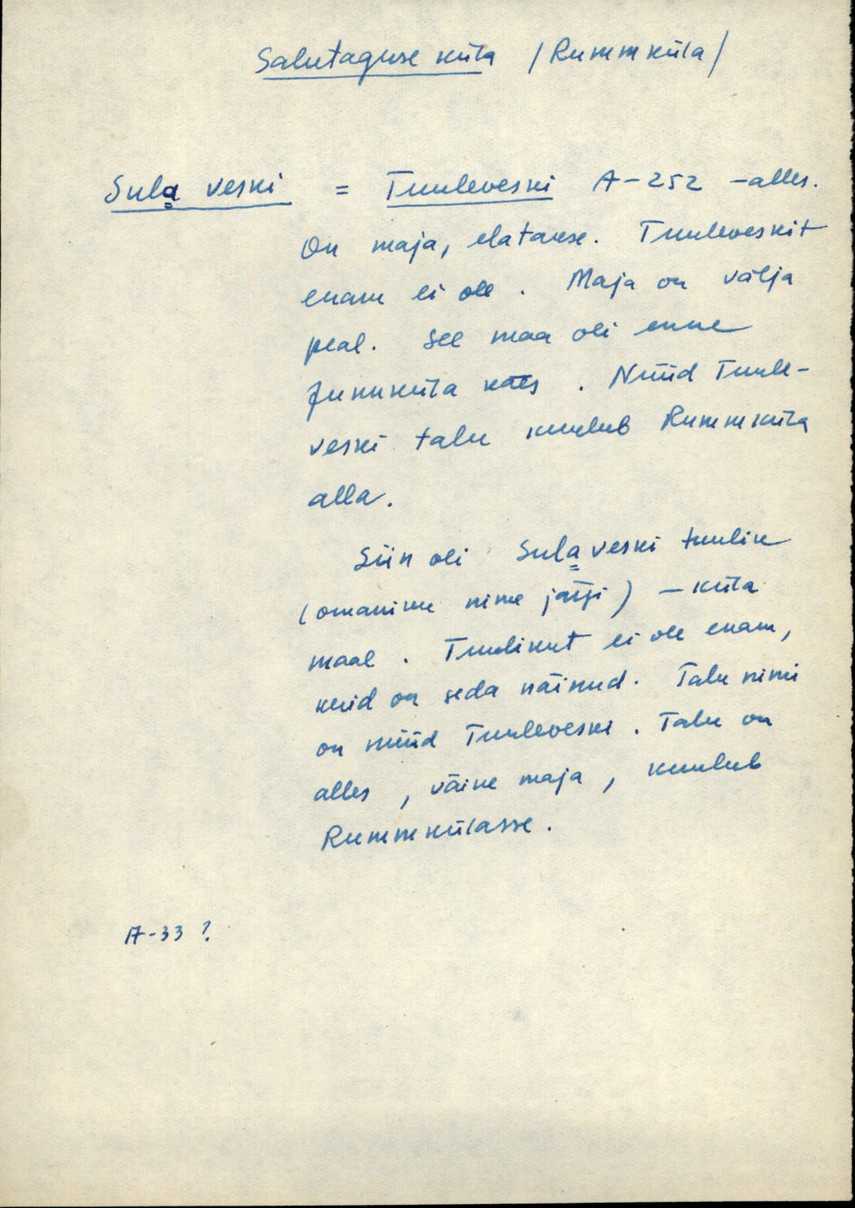 Salutaguse küla /Rummküla/
Sula veski = Tuuleveski A-252 -alles.
On maja, elatakse. Tuuleveskit
enam ei ole. Maja on välja
peal. See maa oli enne
käes. Nüüd Tuule-
veski talu kuulub Rummküla
alla.
Siin oli Sulaveski tuulik
(omaniku nime järgi) - küla
maal. Tuulikut ei ole enam,
kuid on seda näinud. Talu nimi
on nüüd Tuuleveski. Talu on
alles, väike maja, kuulub
Rummkülasse.
A-33 ?